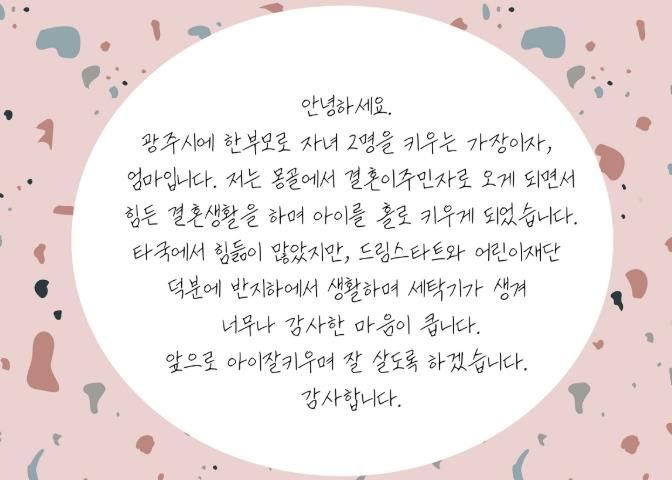 안녕하세요.
광주시에 한부모로 자녀 2명을 키우는 가장이자,
엄마입니다. 저는 몽골에서 결혼이주민자로 오게 되면서
힘든 결혼생활을 하며 아이를 홀로 키우게 되었습니다.
타국에서 힘듦이 많았지만, 드림스타트와 어린이재단
덕분에 반지하에서 생활하며 세탁기가 생겨
너무나 감사한 마음이 큽니다.
앞으로 아이잘키우며 잘 살도록 하겠습니다.
감사합니다.